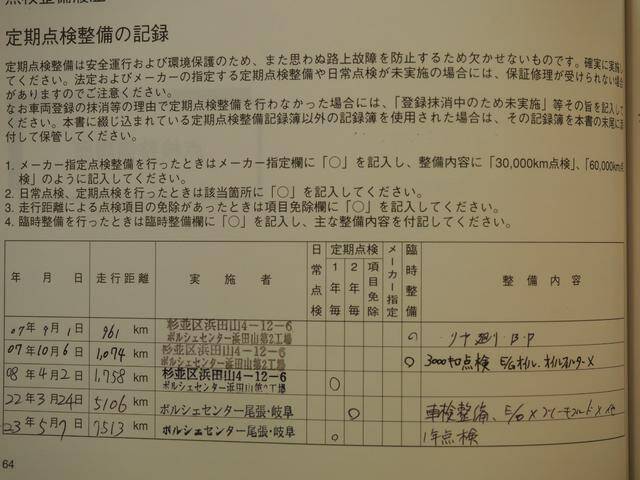 点検整備履歴
定期点検整備の記録
定期点検整備は安全運行および環境保護のため、また思わぬ路上故障を防止するため欠かせないものです。確実に実施し
てください。法定およびメーカーの指定する定期点検整備や日常点検が未実施の場合には、保証修理が受けられない場合
がありますのでご注意ください。
なお車両登録の抹消等の理由で定期点検整備を行わなかった場合には、「登録抹消中のため未実施」等その旨を記入して
ください。本書に綴じ込まれている定期点検整備記録簿以外の記録簿を使用された場合は、その記録簿を本書の末尾に添
付して保管してください。
1. メーカー指定点検整備を行ったときはメーカー指定欄に「○」を記入し、整備内容に「30,000km点検」、「60,000km点
検」のように記入してください。
2. 日常点検、定期点検を行ったときは該当箇所に「○」を記入してください。
3. 走行距離による点検項目の免除があったときは項目免除欄に「○」を記入してください。
4. 臨時整備を行ったときは臨時整備欄に「○」を記入し、主な整備内容を付記してください。
年 月 日 走行距離 実施者 日常点検 定期点検 1年毎 2年毎 項目免除 メーカー指定 臨時整備 整備内容
07年9月1日 961 km 杉並区浜田山4-12-6
ポルシェセンター浜田山第2工場 ○ リヤ廻り B・P
07年10月6日 1,074 km 杉並区浜田山4-12-6
ポルシェセンター浜田山第2工場 ○ 3000キロ点検 E/Gオイル、オイルフィルターX
08年4月2日 1,758 km 杉並区浜田山4-12-6
ポルシェセンター浜田山第2工場 ○
22年3月24日 5106 km ポルシェセンター尾張・岐阜 ○ 車検整備、E/O X
23年5月7日 7513 km ポルシェセンター尾張・岐阜 ○ 1年点検
64